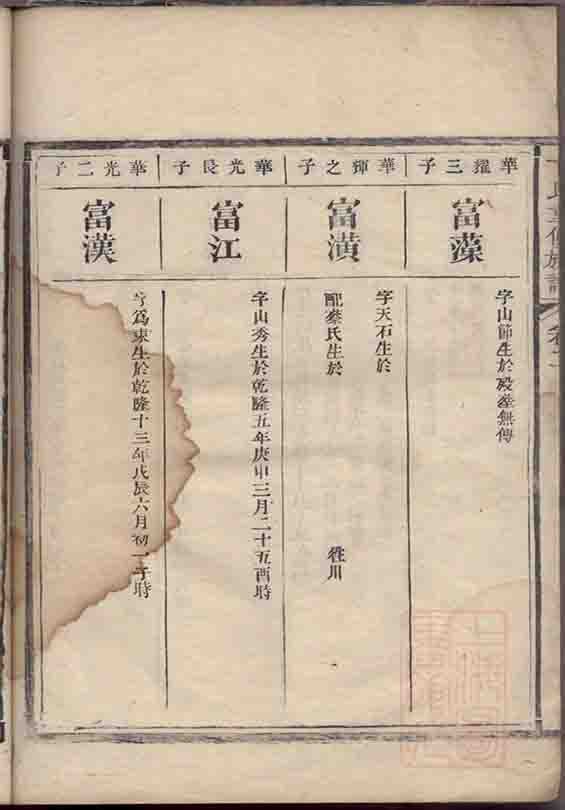 華耀三子
富藻
字山節生於歿塟無傳
華輝之子
富潢
字天石生於
配蔡氏生於 徃川
華光長子
富江
字山秀生於乾隆五年庚申三月二十五酉時
華光二子
富漢
字爲東生於乾隆十三年戊辰六月初一子時